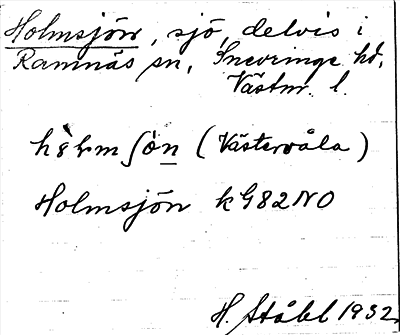 Holmsjön, sjö, delvis i
Ramnäs sn, Snevringe hd,
Västm. l.
(Västervåla)
Holmsjön k G82NO
H. Ståhl 1932.